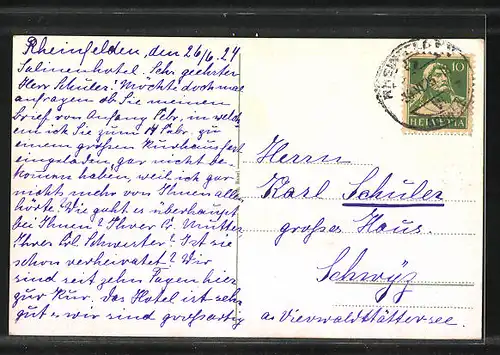 Rheinfelden, den 26/6. 24
Salinenhotel. Sehr geehrter
Herr Schuler! Möchte doch mal
anfragen ob Sie meinen
Brief von Anfang Febr. in welch
em ich Sie zum 14 Febr. zu
einem großen Kurhausfest
eingeladen, gar nicht be-
kommen haben, weil ich gar
nichts mehr von Ihnen allen
hörte? Wie geht es überhaupt
bei Ihnen? Ihrer lb. Mutter,
Ihrer lbl Schwester? Ist sie
schon verheiratet? Wir
sind seit zehn Tagen hier
zur Kur. das Hotel ist sehr
gut & wir sind großartig
10
HELVETIA
Herrn
Karl Schuler
großes Haus.
Schwyz
a. Vierwaldstättersee.